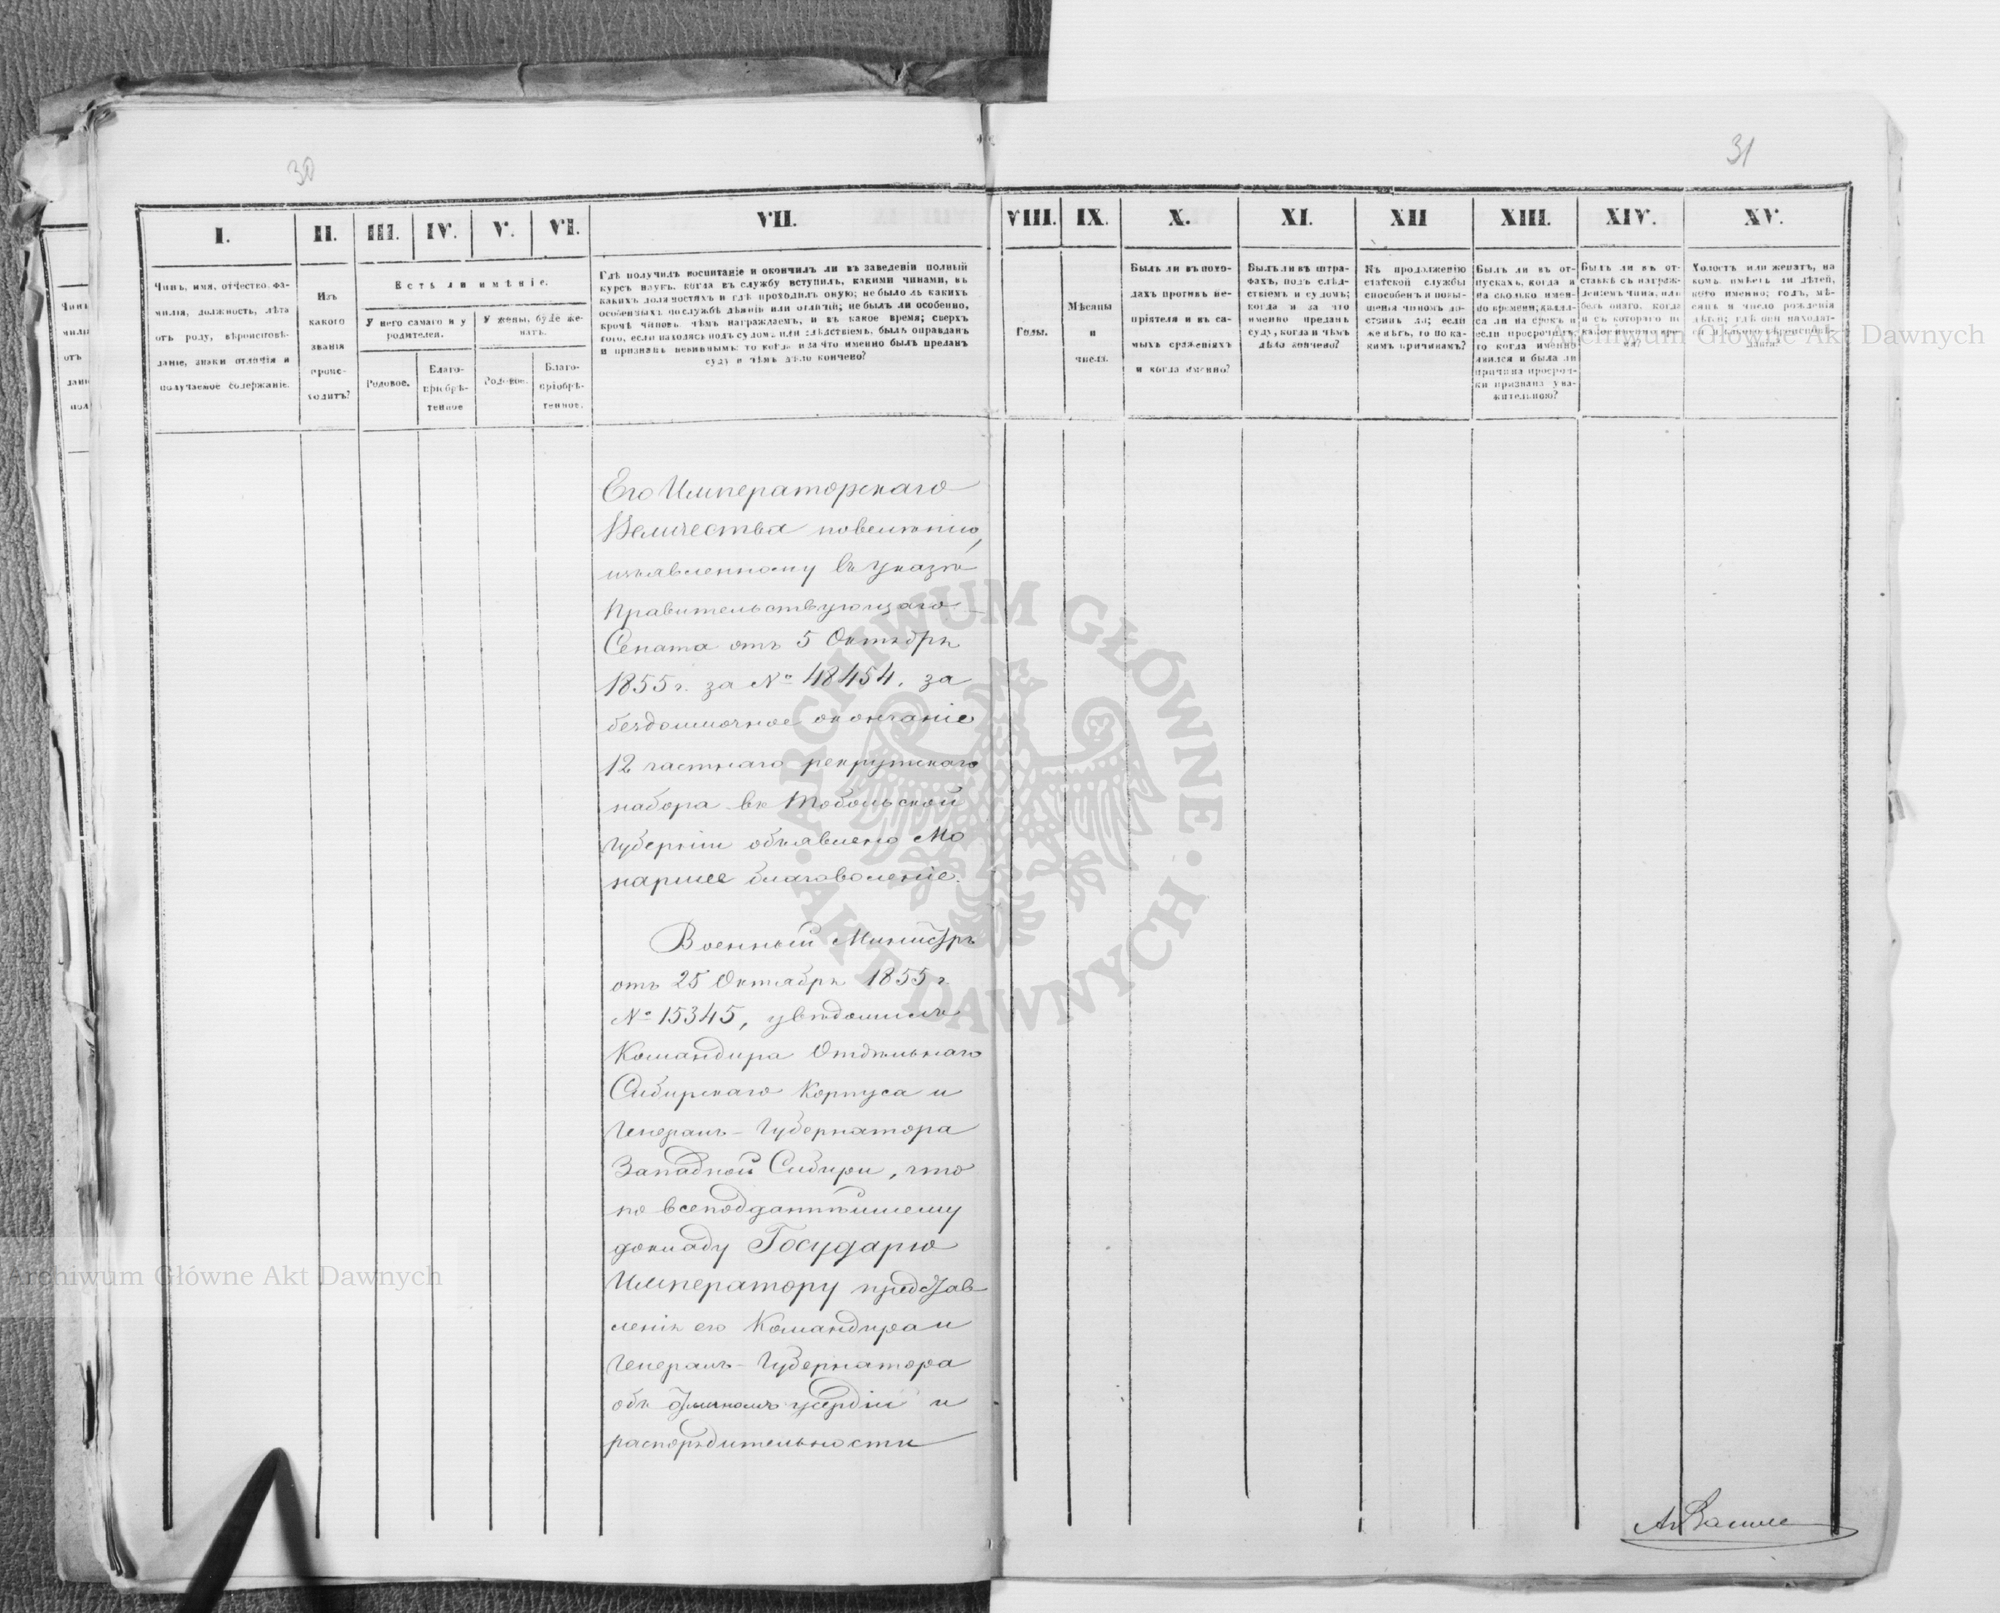 30
31
I.
II.
III.
IV.
V.
VI.
VII.
VIII.
IX.
X.
XI.
XII
XIII.
XIV.
XV.
Чинъ, имя, отчество, фа-
милія, должность, лѣта
отъ роду, вѣроисповѣ-
даніе, знаки отличія и
получаемое содержаніе.
Изъ
какого
званія
проис-
ходитъ?
Есть ли имѣніе.
У него самаго и у
родителей.
У жены, буде же-
натъ.
Родовое.
Благо-
пріобрѣ-
тенное
Родовое.
Благо-
пріобрѣ-
тенное.
Гдѣ получилъ воспитаніе и окончилъ ли въ заведеніи полный
курсъ наукъ, когда въ службу вступилъ, какими чинами, въ
какихъ должностяхъ и гдѣ проходилъ оную; не было ль какихъ
особенныхъ по службѣ дѣяній или отличій; не былъ ли особенно,
кромѣ чиновъ, чѣмъ награждаемъ, и въ какое время; сверхъ
того, если находясь подъ судомъ, или слѣдствіемъ, былъ оправданъ
и признанъ невиннымъ: то когда и за что именно былъ преданъ
суду и чѣмъ дѣло кончено?
Годы.
Мѣсяцы
и
числа.
Былъ ли въ похо-
дахъ противъ не-
пріятеля и въ са-
мыхъ сраженіяхъ
и когда именно?
Былъ ли въ штра-
фахъ, подъ слѣд-
ствіемъ и судомъ;
когда и за что
именно преданъ
суду, когда и чѣмъ
дѣло кончено?
Къ продолженію
статской службы
способенъ и повы-
шенія чиномъ до-
стоинъ ли; если
же нѣтъ, то по ка-
кимъ причинамъ?
Былъ ли въ от-
пускахъ, когда и
на сколько имен-
но времени; явил-
ся ли на срокъ и
если просрочилъ,
то когда именно
явился и была ли
причина просроч-
ки признана ува-
жительною?
Былъ ли въ от-
ставкѣ съ награж-
деніемъ чина, или
безъ онаго, когда
и съ котораго по
Холостъ или женатъ, на
комъ, имѣетъ ли дѣтей,
кого именно; годъ, мѣ-
сяцъ и число рожденія
дѣтей; гдѣ они находят-
Его Императорскаго
Величества повелѣнію,
изъявленному въ указѣ
Правительствующаго
Сената отъ 5 Октября
1855 г. за № 48454, за
бездоимочное окончаніе
12 частнаго рекрутскаго
набора въ Тобольской
Губерніи объявлено Мо
наршее благоволеніе.
Военный Министръ
отъ 25 Октября 1855 г.
№ 15345, увѣдомилъ
Командира Отдѣльнаго
Сибирскаго Корпуса и
Генералъ-Губернатора
Западной Сибири, что
по всеподданнѣйшему
докладу Государю
Императору представ
ленія его Командира и
Генералъ-Губернатора
объ отличномъ усердіи и
распорядительности
Archiwum Główne Akt Dawnych
Archiwum Główne Akt Dawnych
ARCHIWUM GŁÓWNE · AKT DAWNYCH ·